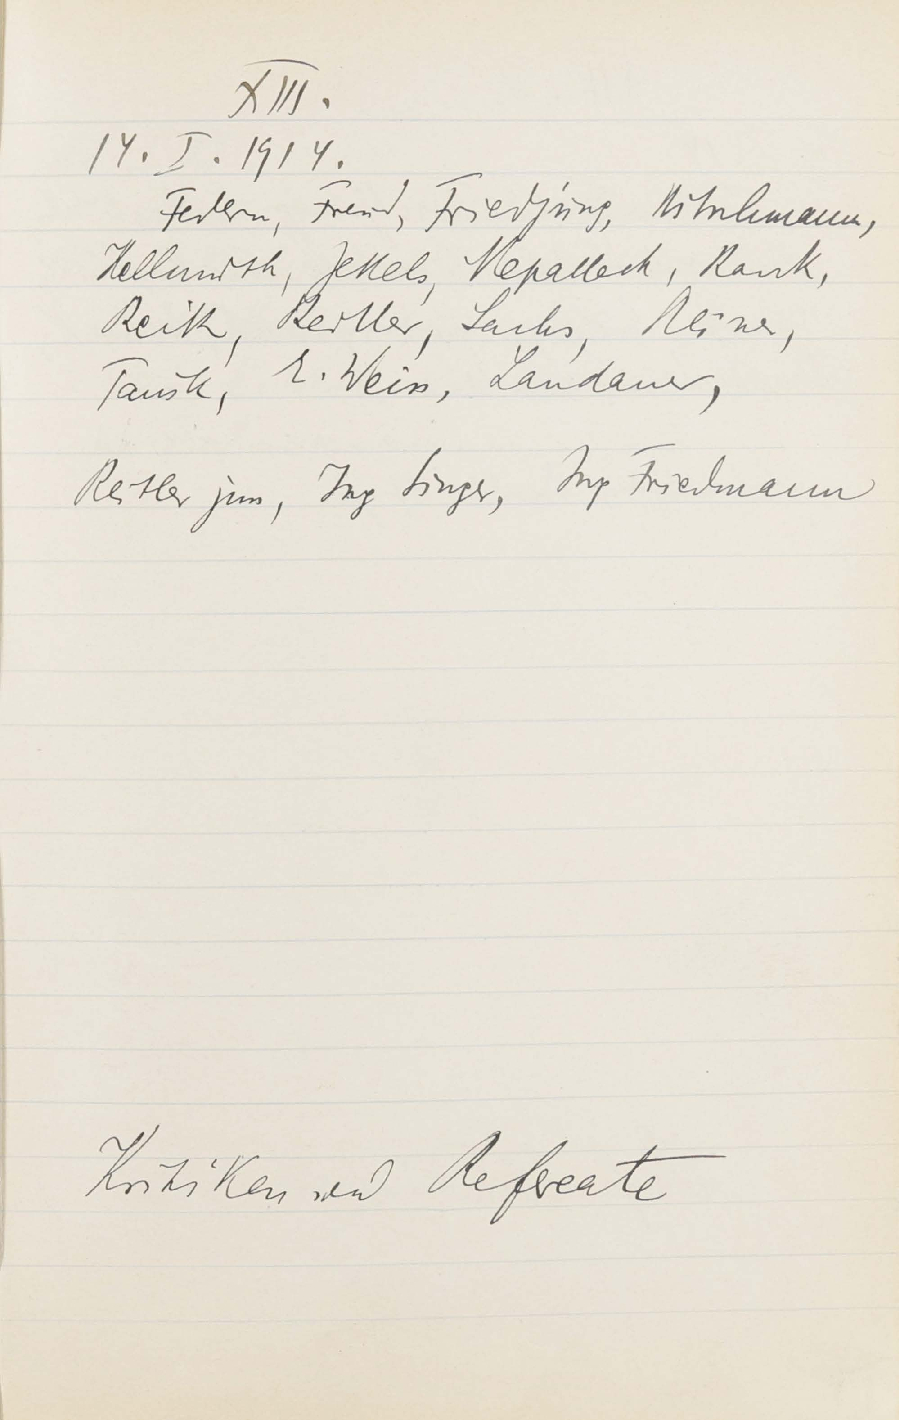 XIII.
14. I. 1914.
Federn, Freud, Friedjung, Hitschmann,
Hellmuth, Jekels, Nepalleck, Rank,
Reik, Reitler, Sachs, Steiner,
Tausk, E. Weiss, Landauer,
Reitler jun, Ing Singer, Ing Friedmann
Kritiken und Referate